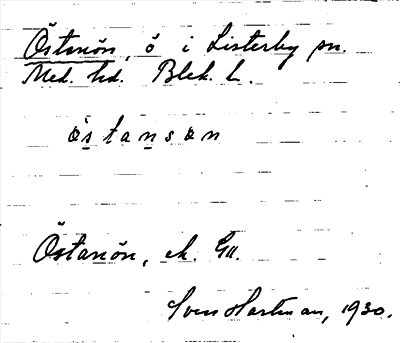 Östanön, ö i Listerby sn.
Med. hd. Blek. l.
östansön
Östanön, ek. Ga.
Sven Hartman, 1930.